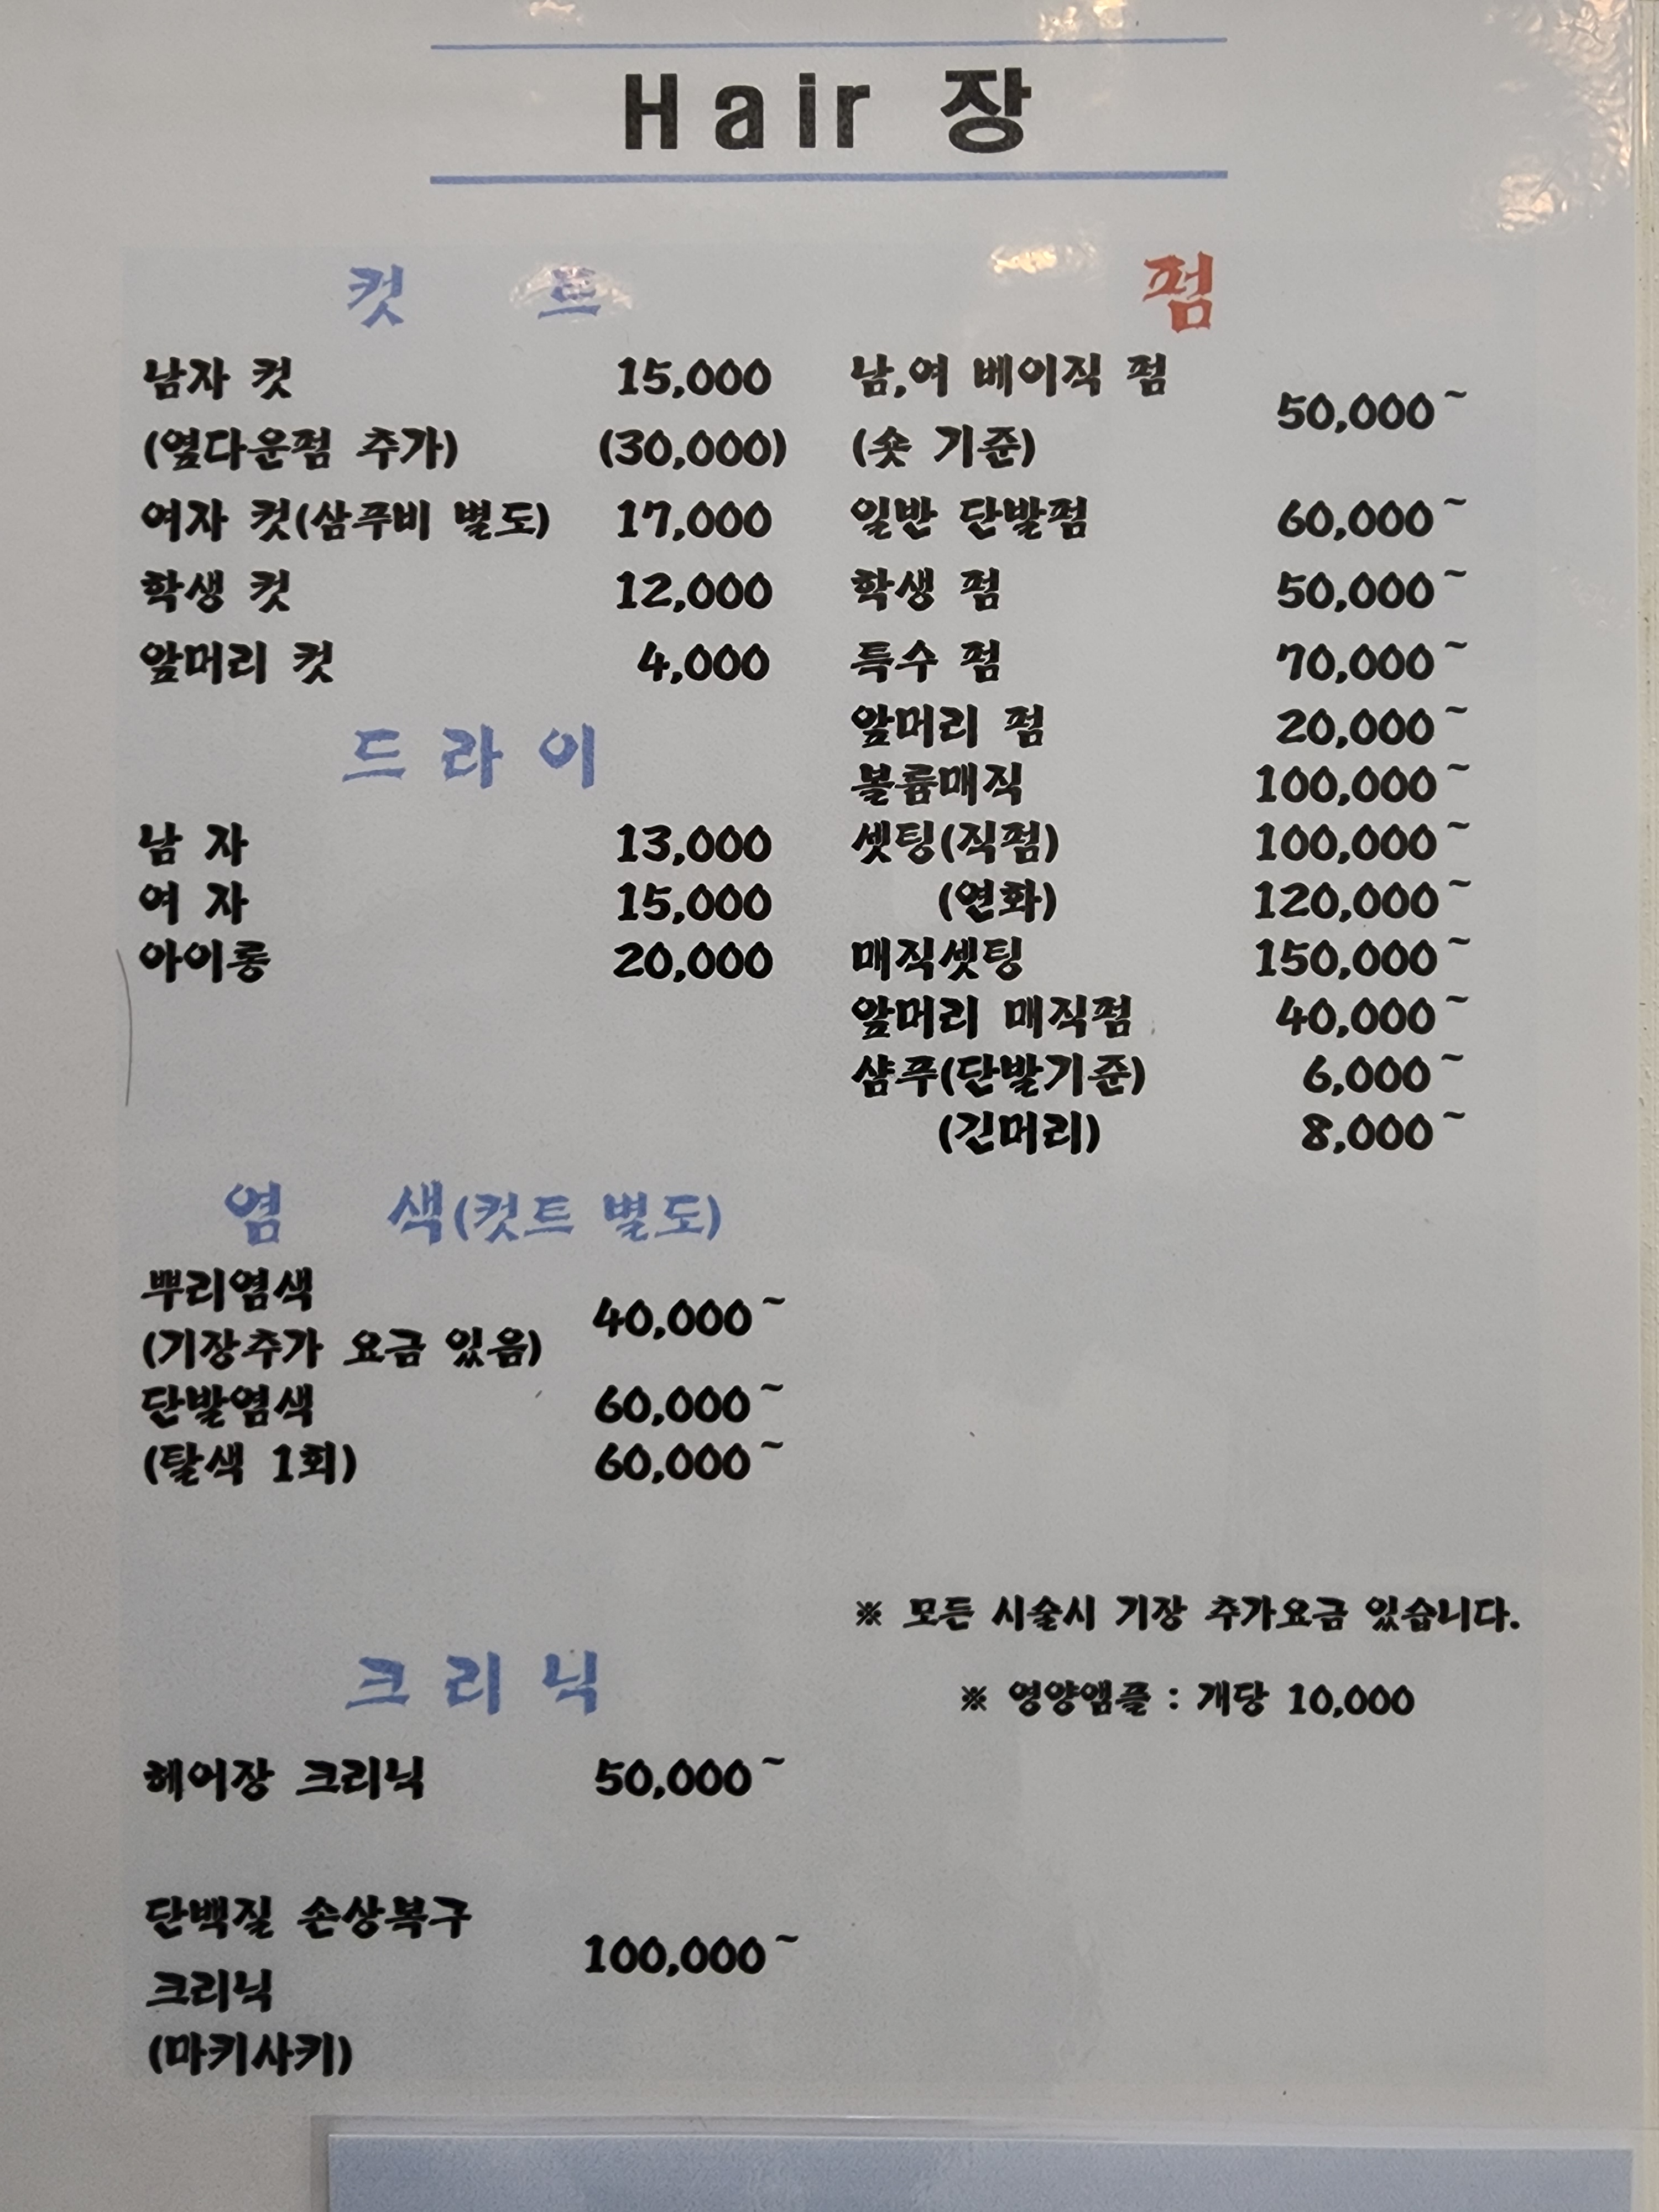 Hair 장
컷 트
남자 컷 15,000
(옆다운펌 추가) (30,000)
여자 컷(삼푸비 별도) 17,000
학생 컷 12,000
앞머리 컷 4,000
드라이
남 자 13,000
여 자 15,000
아이롱 20,000
염 색(컷트 별도)
뿌리염색
40,000~
(기장추가 요금 있음)
단발염색 60,000~
(탈색 1회) 60,000~
크리닉
헤어장 크리닉 50,000~
단백질 손상복구
100,000~
크리닉
(마키사키)
펌
남,여 베이직 펌
50,000~
(숏 기준)
일반 단발펌 60,000~
학생 펌 50,000~
특수 펌 70,000~
앞머리 펌 20,000~
볼륨매직 100,000~
셋팅(직펌) 100,000~
(연화) 120,000~
매직셋팅 150,000~
앞머리 매직펌 40,000~
샴푸(단발기준) 6,000~
(긴머리) 8,000~
※ 모든 시술시 기장 추가요금 있습니다.
※ 영양앰플 : 개당 10,000